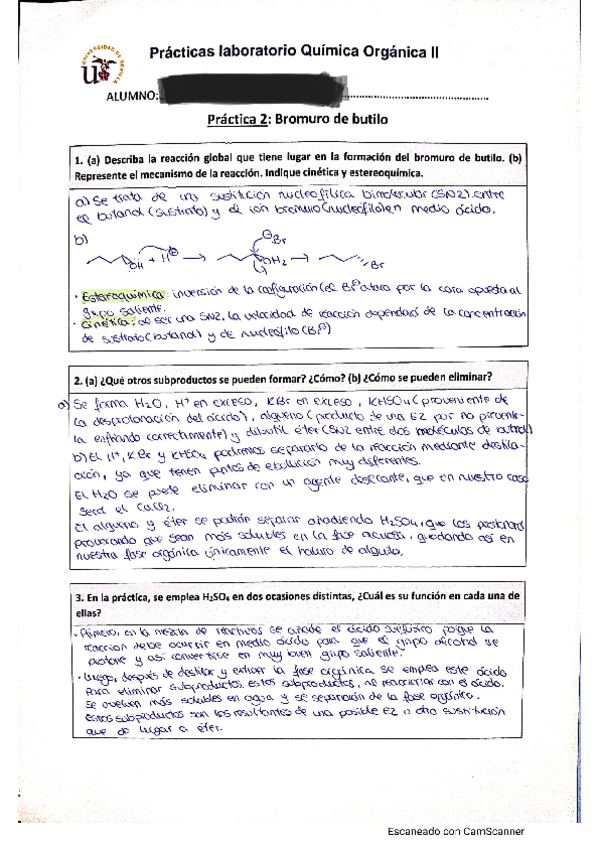 UNIVERSIDAD DE SEVILLA
Prácticas laboratorio Química Orgánica II
ALUMNO:
Práctica 2: Bromuro de butilo
1. (a) Describa la reacción global que tiene lugar en la formación del bromuro de butilo. (b)
Represente el mecanismo de la reacción. Indique cinética y estereoquímica.
a) Se trata de una sustitución nucleofílica bimolecular (SN2) entre
el butanol (sustrato) y el ión bromuro (nucleófilo) en medio ácido.
b)
OH + H⊕ → OH₂ → Br
⊖Br
• Estereoquímica: inversión de la configuración (el Br⊖ ataca por la cara opuesta al
grupo saliente.
• Cinética: al ser una SN2, la velocidad de reacción dependerá de la concentración
de sustrato (butanol) y de nucleófilo (Br⊖)
2. (a) ¿Qué otros subproductos se pueden formar? ¿Cómo? (b) ¿Cómo se pueden eliminar?
a) Se forma H₂O, H⁺ en exceso, KBr en exceso, KHSO₄ (proveniente de
la desprotonación del ácido), alqueno (producto de una E2 por no
enfriando correctamente) y dibutil éter (SN2 entre dos moléculas de butanol)
b) El H⁺, KBr y KHSO₄ podremos separarlo de la reacción mediante destila-
ción, ya que tienen puntos de ebullición muy diferentes.
El H₂O se puede eliminar con un agente desecante, que en nuestro caso
será el CaCl₂.
El alqueno y éter se podrán separar añadiendo H₂SO₄, que los
provocando que sean más solubles en la fase acuosa, quedando así en
nuestra fase orgánica únicamente el haluro de alquilo.
3. En la práctica, se emplea H₂SO₄ en dos ocasiones distintas, ¿Cuál es su función en cada una de
ellas?
• Primero, en la mezcla de reactivos se añade el ácido sulfúrico porque la
reacción debe ocurrir en medio ácido para que el grupo alcohol se
protone y así convertirse en muy buen grupo saliente.
• Luego, después de destilar y extraer la fase orgánica se emplea este ácido
para eliminar subproductos, estos subproductos, al reaccionar con el ácido,
se vuelven más solubles en agua y se separarán de la fase orgánica.
Estos subproductos son los resultantes de una posible E2 o otra sustitución
que da lugar a éter.
Escaneado con CamScanner